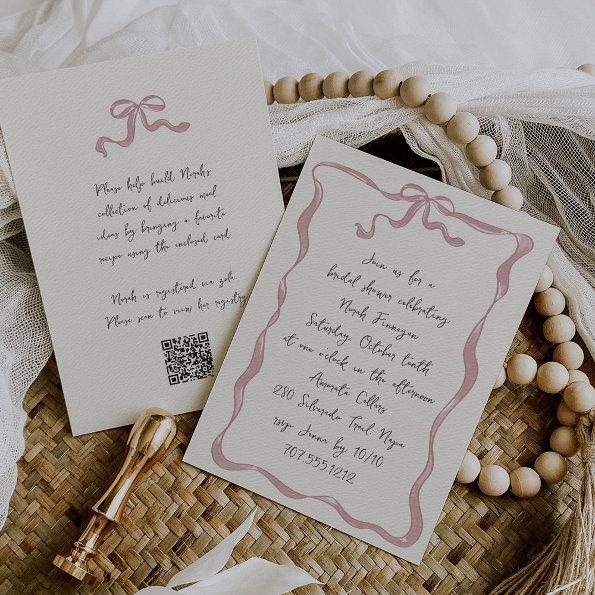 Please help build Norah's
collection of delicious meal
ideas by bringing a favorite
recipe using the enclosed card.
Norah is registered via zola.
Please scan to view her registry.
Join us for a
bridal shower celebrating
Norah Finnegan
Saturday, October tenth
at one o'clock in the afternoon
Aucurata Cellars
280 Silverado Trail, Napa
rsvp Jenna by 10/10
707.555.1212